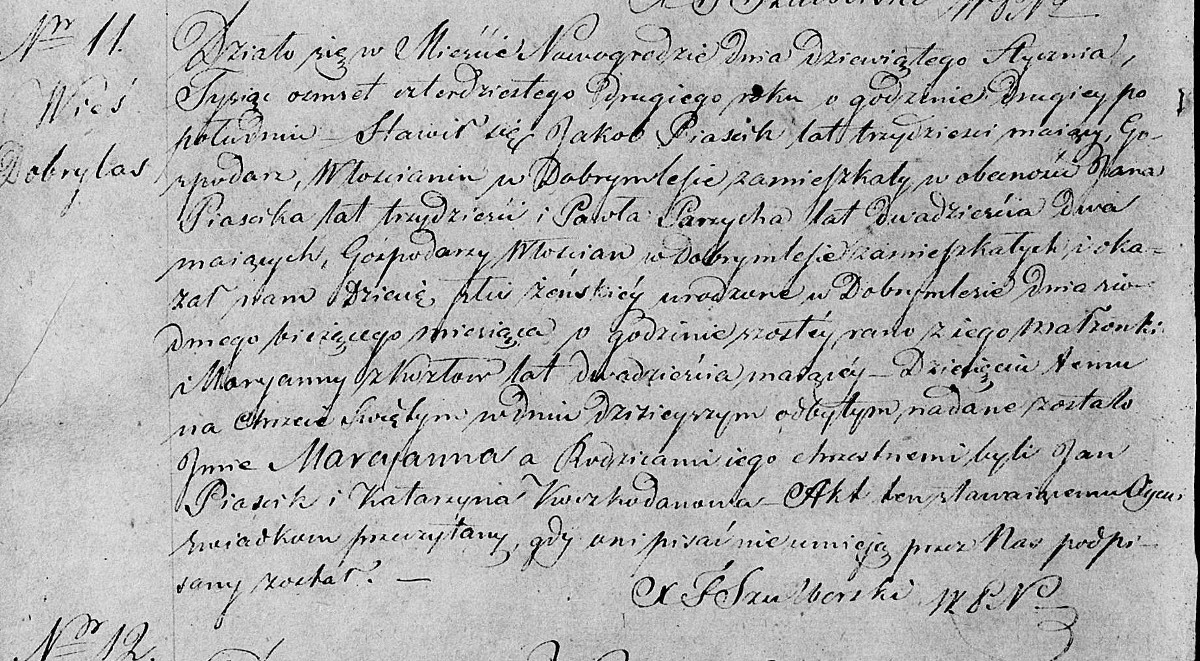 Nr 11.
Wieś
Dobrylas
Działo się w Mieście Nowogrodzie dnia dziewiątego Stycznia,
Tysiąc osmset czterdziestego drugiego roku o godzinie drugiey po
południu Stawił się Jakob Piascik lat trzydzieści maiący, Go-
spodarz, Włościanin w Dobrymlesie zamieszkały w obecności Jana
Piascika lat trzydzieści i Pawła Parzycha lat dwadzieścia dwa
maiących, Gospodarzy Włościan w Dobrymlesie zamieszkałych i oka-
zał nam Dziecię płci żeńskiéy urodzone w Dobrymlesie dnia sió-
dmego bieżącego miesiąca o godzinie szostéy rano z iego małżonki
i Maryanny z Kozłow lat dwadzieścia maiącéy – Dziecięciu temu
na chrzcie Swiętym w dniu dzisieyszym odbytym, nadane zostało
Jmie Maryanna a Rodzicami iego chrzestnemi byli Jan
Piascik i Katarzyna – Akt ten stawaiącemu Oycu i
swiadkom przeczytany, gdy oni pisać nie umieią przez Nas podpi-
sany został. –
X F Szulborski
Nr 12.